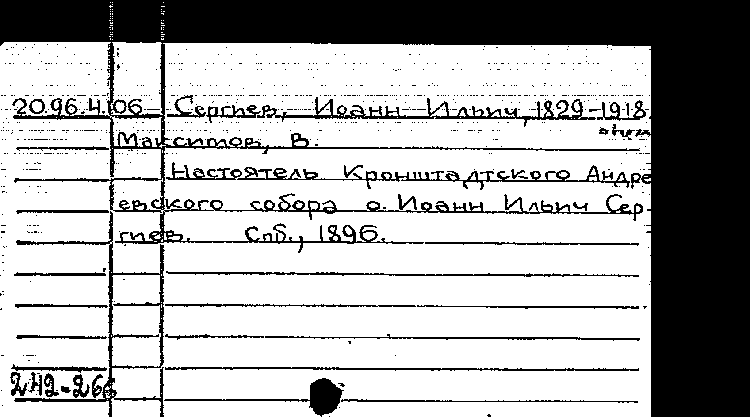 20.96.4.106 Сергиев, Иоанн Ильич, 1829-1918
Максимов, В.
Настоятель Кронштадтского Андре
евского собора о. Иоанн Ильич Сер-
гиев. Спб., 1896.
242-266